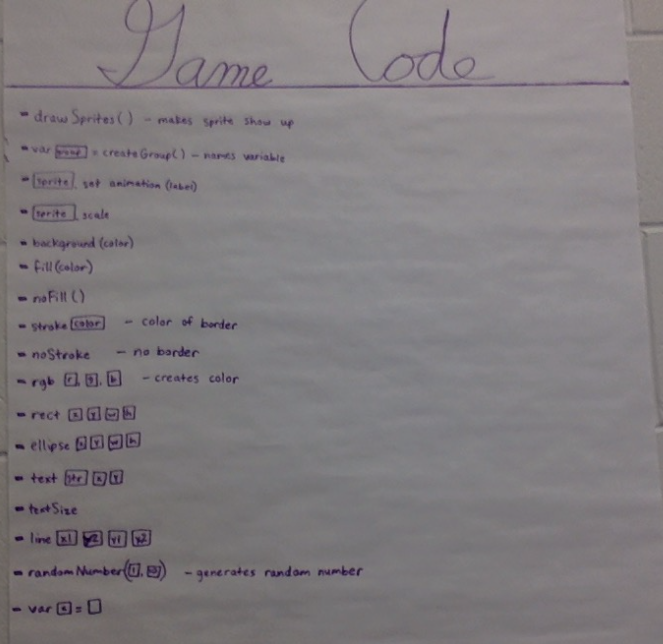 Game Code
- drawSprites() - makes sprite show up
- var group = createGroup() - names variable
- sprite. set animation (label)
- sprite. scale
- background(color)
- fill(color)
- noFill()
- stroke color - color of border
- noStroke - no border
- rgb r, g, b - creates color
- rect x y w h
- ellipse x y w h
- text str x y
- textSize
- line x1 y1 x2
- randomNumber( 1, ) - generates random number
- var x =